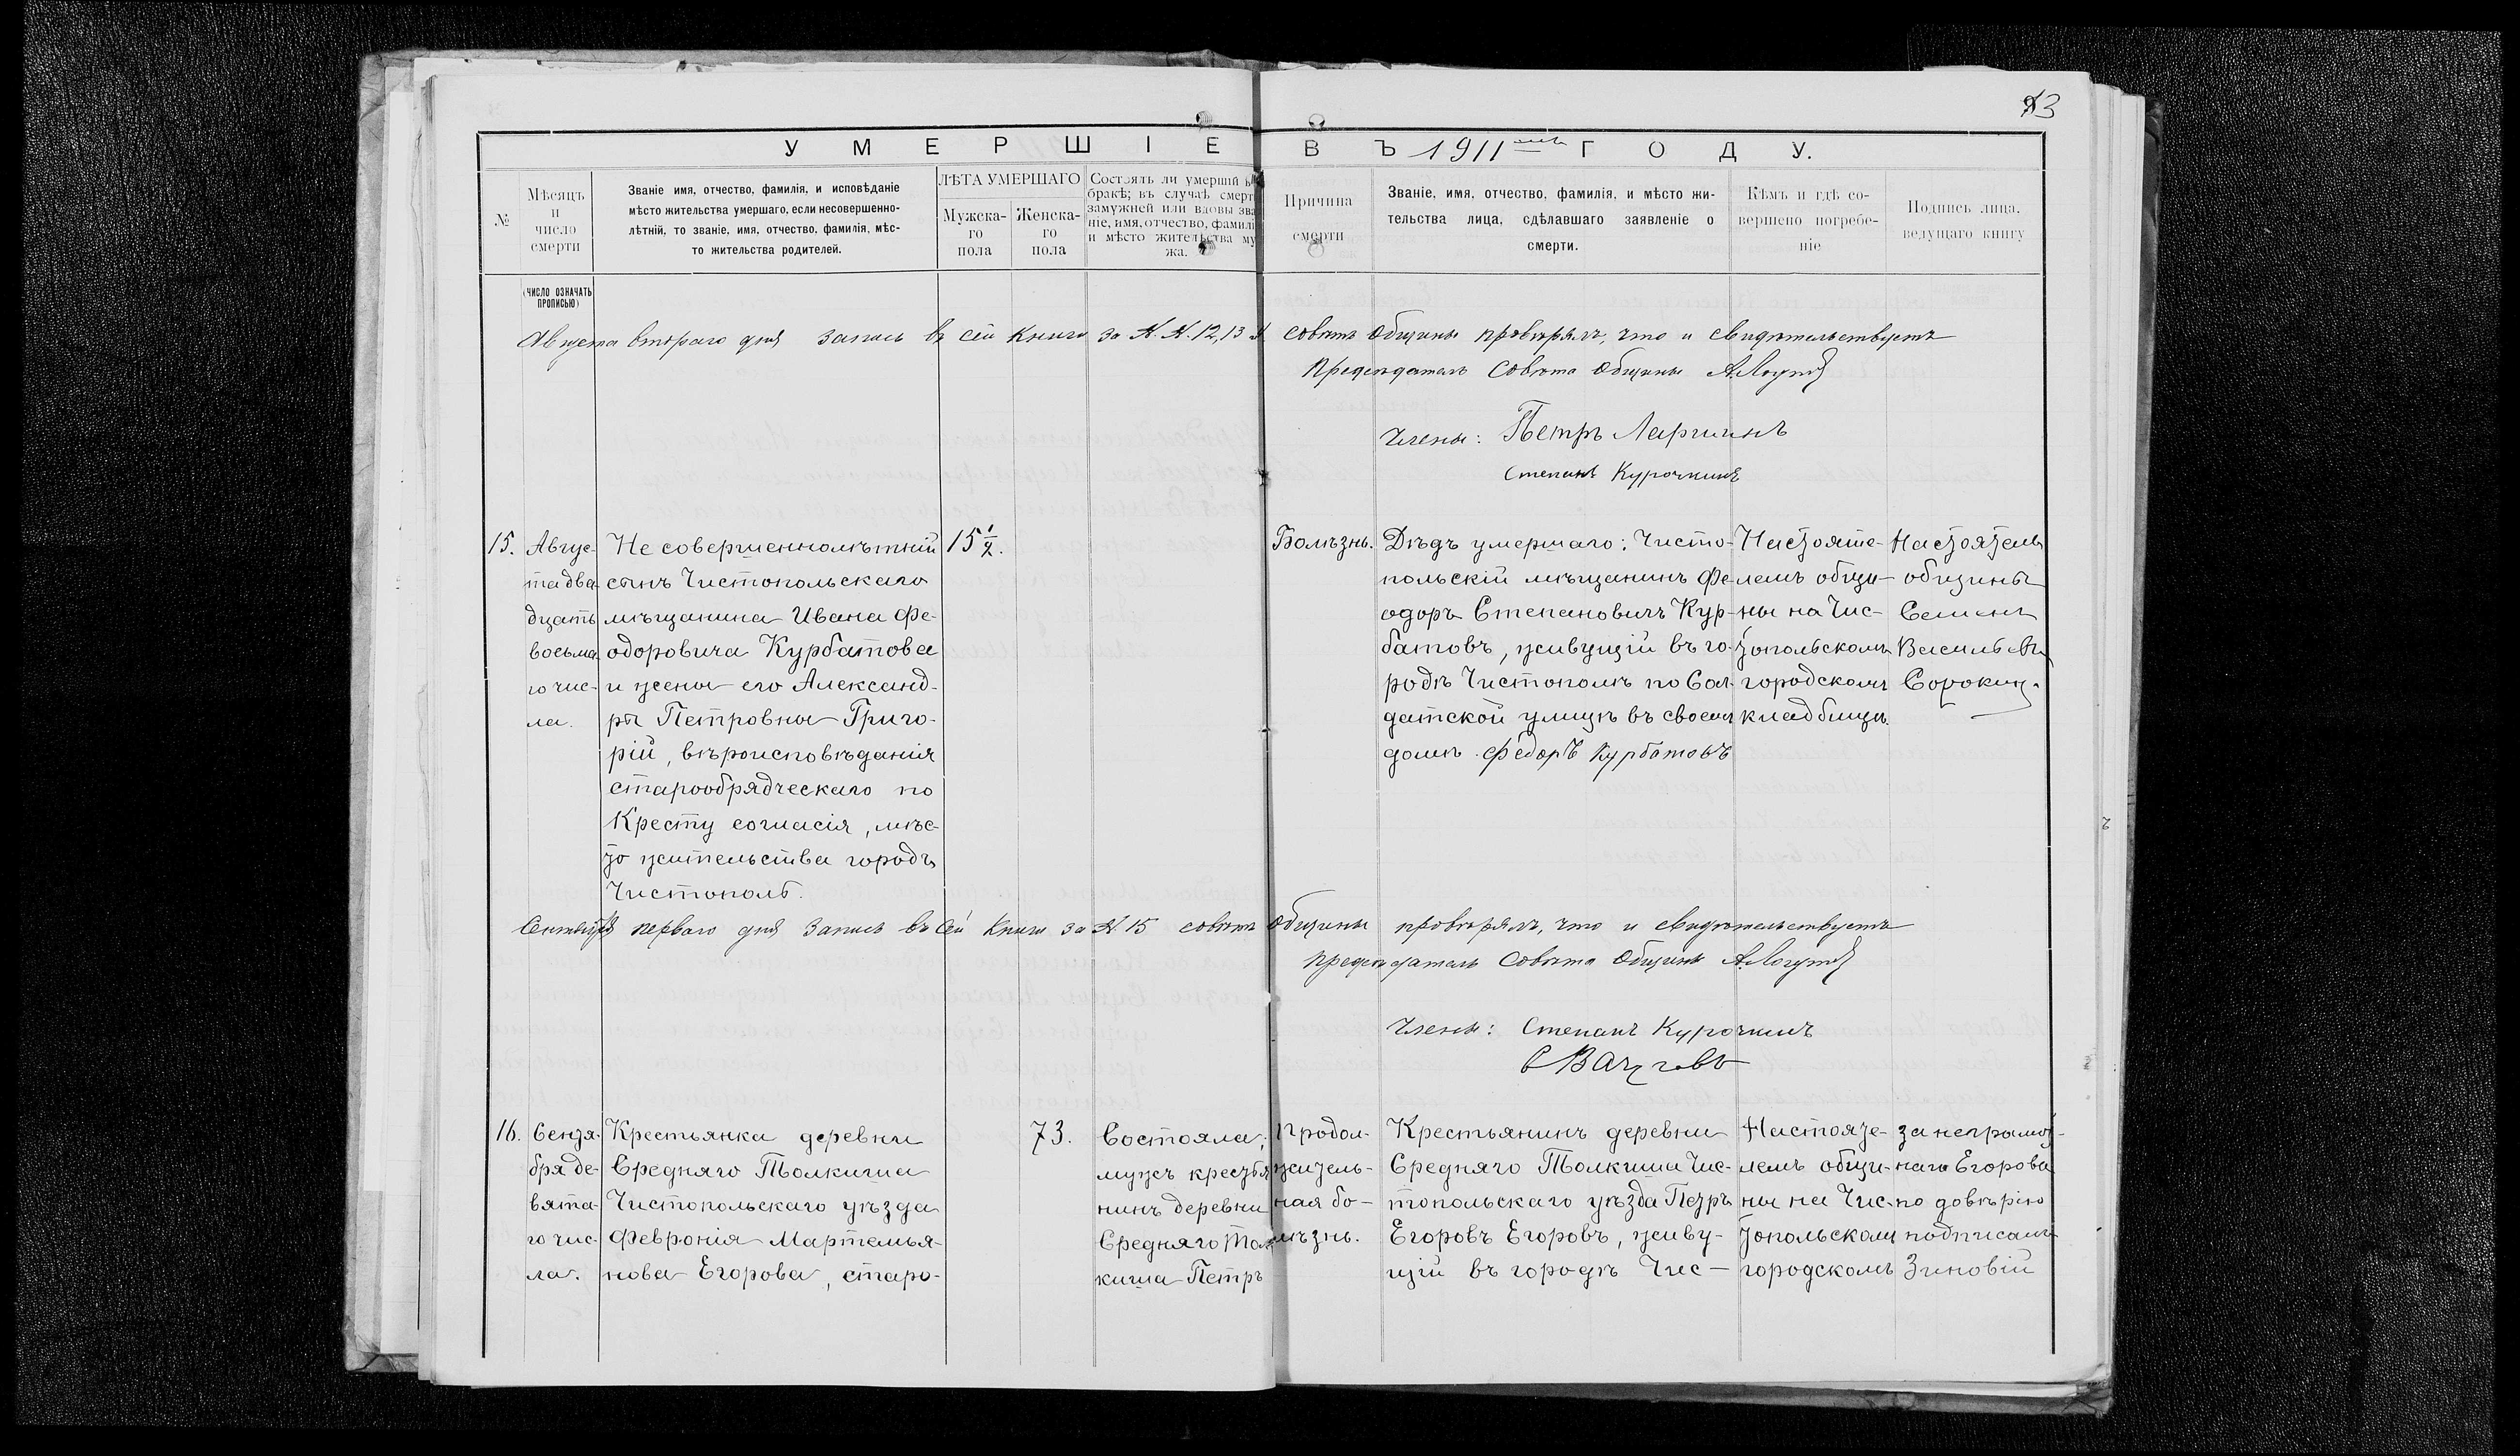 93
УМЕРШІЕ ВЪ 1911 мъ ГОДУ.
№
Мѣсяцъ
и
число
смерти
Званіе имя, отчество, фамилія, и исповѣданіе
мѣсто жительства умершаго, если несовершенно-
лѣтній, то званіе, имя, отчество, фамилія, мѣс-
то жительства родителей.
ЛѢТА УМЕРШАГО
Мужска-
го
пола
Женска-
го
пола
Состоялъ ли умершій въ
бракѣ; въ случаѣ смерт
замужней или вдовы зва
ніе, имя, отчество, фамилі
и мѣсто жительства му
жа.
Причина
смерти
Званіе, имя, отчество, фамилія, и мѣсто жи-
тельства лица, сдѣлавшаго заявленіе о
смерти.
Кѣмъ и гдѣ со-
вершено погребе-
ніе
Подпись лица,
ведущаго книгу
(ЧИСЛО ОЗНАЧАТЬ
ПРОПИСЬЮ)
Августа втораго дня запись въ сей книги за №.№.12,13 совѣтъ общины провѣрялъ, что и свидѣтельствуетъ
Предсѣдатель Совѣта Общины А.Логутов
Члены: Петръ Ларшинъ
Степанъ Курочкинъ
15.
Авгус-
та два
дцать
восьма
го чис-
ла.
Не совершеннолѣтній
сынъ Чистопольскаго
мѣщанина Ивана Фе-
одоровича Курбатова
и жены его Александ-
ры Петровны Григо-
рій, вѣроисповѣданія
старообрядческаго по
Кресту согласія, мѣс-
то жительства городъ
Чистополь.
15 1/2.
Болѣзнь.
Дѣдъ умершаго: Чисто-
польскій мѣщанинъ Фе-
одоръ Степановичъ Кур-
батовъ, живущій въ го-
родѣ Чистополѣ по Сол-
датской улицѣ въ своемъ
домѣ. Федоръ Курбатовъ
Настояте-
лемъ общи-
ны на Чис-
топольскомъ
городскомъ
кладбищѣ.
Настоятель
общины
Семенъ
Васильевъ
Сорокин.
Сентября перваго дня запись въ сей книги за №15 совѣтъ Общины провѣрялъ, что и свидѣтельствуетъ
Предсѣдатель Совѣта Общины А.Логутов
Члены: Степанъ Курочкинъ
16.
Сентя-
бря де-
вята-
го чис-
ла.
Крестьянка деревни
Средняго Толкиша
Чистопольскаго уѣзда
Февронія Мартемья-
нова Егорова, старо-
73.
Состояла;
мужъ кресть
нинъ деревни
Средняго Тол
киша Петръ
Продол-
житель-
ная бо-
лѣзнь.
Крестьянинъ деревни
Средняго Толкиша Чис-
топольскаго уѣзда Петръ
Егоровъ Егоровъ, живу-
щій въ городѣ Чис-
Настояте-
лемъ общи-
ны на Чис-
топольскомъ
городскомъ
за неграмот-
наго Егорова
по довѣрію
подписалъ
Зиновій